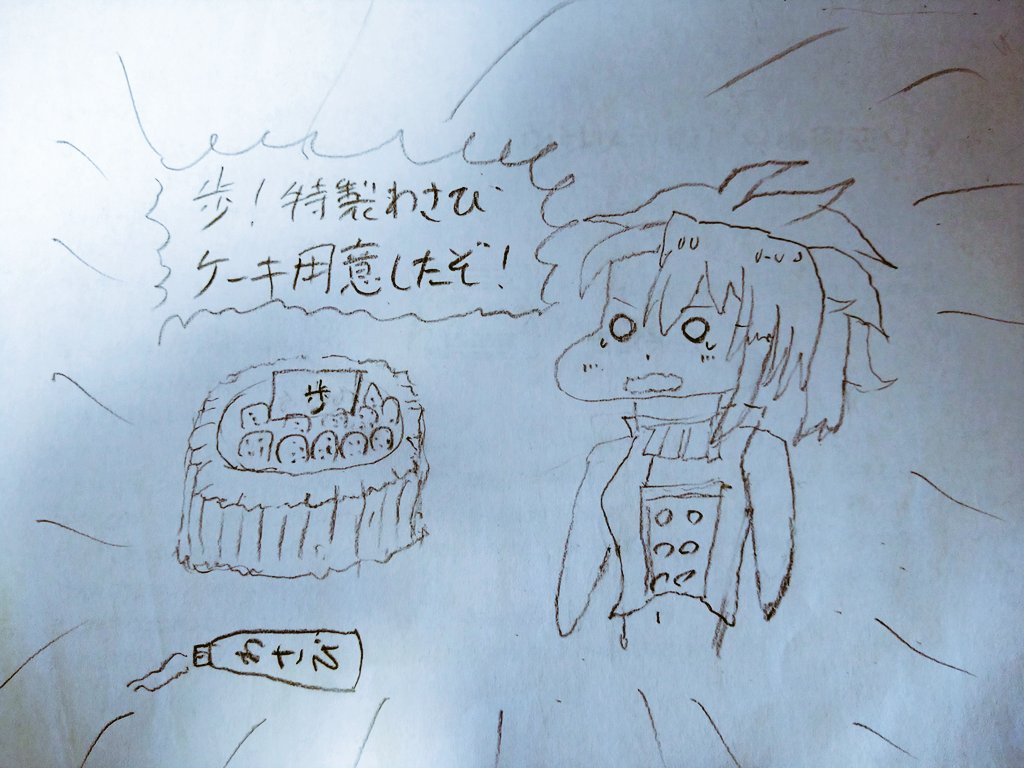 歩!特製わさび
ケーキ用意したぞ!
歩
わさび